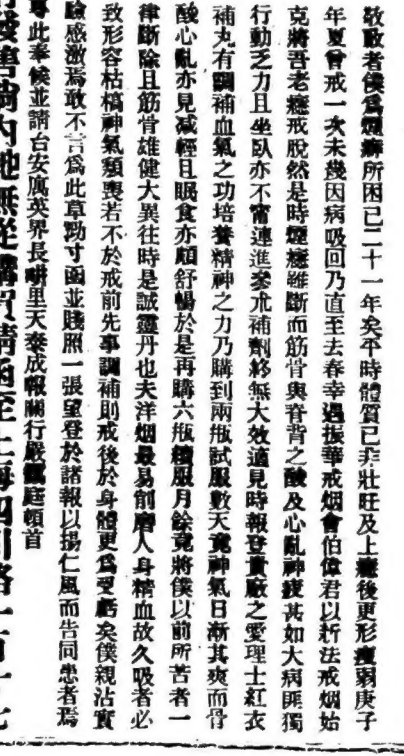 敬啟者僕爲煙癖所困已二十一年矣平時體質已非壯旺及上癮後更形瘦弱庚子
年夏曾戒一次未幾因病吸回乃直至去春幸遇振華戒烟會伯偉君以新法戒烟始
克將吾老癮戒脫然是時煙癮雖斷而筋骨與脊背之酸及心亂神疲甚如大病匪獨
行動乏力且坐臥亦不甯連進參朮補劑終無大效適見時報登貴廠之愛理士紅衣
補丸有調補血氣之功培養精神之力乃購到兩瓶試服數天竟神氣日漸其爽而骨
酸心亂亦見减輕且眠食亦頗舒暢於是再購六瓶續服月餘竟將僕以前所苦者一
律斷除且筋骨雄健大異往時是誠靈丹也夫洋烟最易削磨人身精血故久吸者必
致形容枯槁神氣頹喪若不於戒前先事調補則戒後於身體更爲受虧矣僕親沾實
騐感激焉敢不言爲此草勁寸函並賤照一張望登於諸報以揚仁風而告同患者焉
專此奉候並請台安寓英界長畊里天泰成報關行嚴鶴庭頓首
內地無從購買請函至上海四川路一百十七